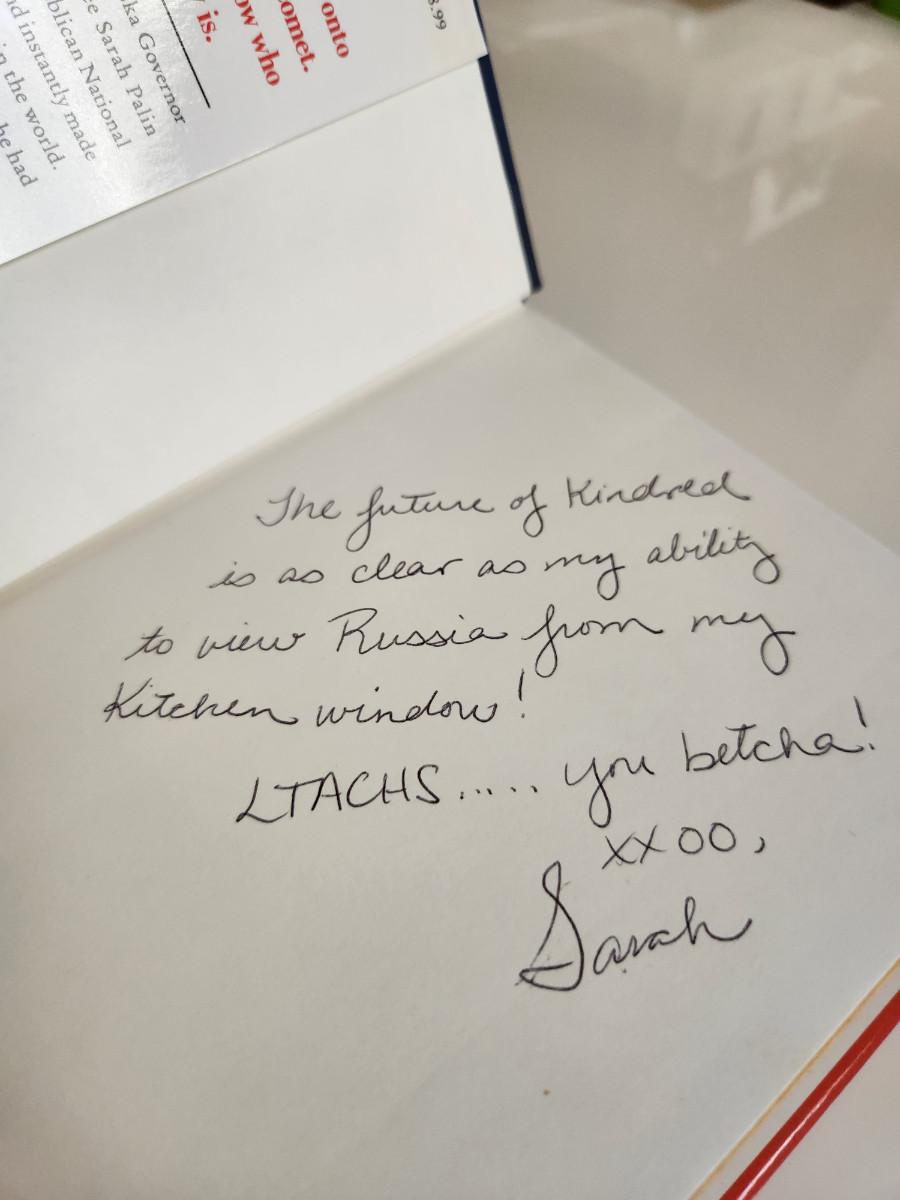 8.99
onto
omet.
ow who
is.
ka Governor
ee Sarah Palin
blican National
nd instantly made
in the world.
he had
The future of Kindred
is as clear as my ability
to view Russia from my
Kitchen window!
LTACHS..... you betcha!
XXOO,
Sarah